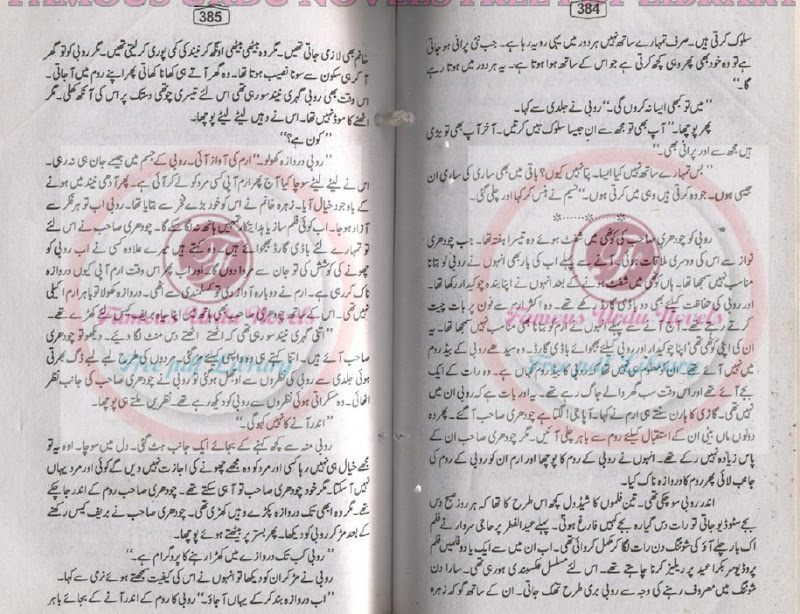 FAMOUS URDU NOVELS FREE PDF LIBRARY
384
سلوک کرتی ہیں۔ صرف تمہارے ساتھ نہیں ہر دور میں یہی رویہ رہا ہے۔ جب نئی پرانی ہو جاتی
ہے تو وہ خود بھی پھر وہی کچھ کرتی ہے جو اس کے ساتھ ہوا ہوتا ہے۔ یہ ہر دور میں ہوتا رہے
گا۔‘‘
’’میں تو کبھی ایسا نہ کروں گی۔‘‘ روبی نے جلدی سے کہا۔
پھر پوچھا۔ ’’آپ بھی تو مجھ سے ان جیسا سلوک نہیں کرتیں۔ آخر آپ بھی تو بڑی
ہیں مجھ سے اور پرانی بھی۔‘‘
’’بس تمہارے ساتھ نہیں کیا ایسا۔ پتا نہیں کیوں؟ باقی میں بھی ساری کی ساری ان
جیسی ہوں۔ جو وہ کرتی ہیں وہی میں کرتی ہوں۔‘‘ نسیم نے ہنس کر کہا اور چلی گئی۔
روبی کو چودھری صاحب کی کوٹھی میں شفٹ ہوئے وہ تیسرا ہفتہ تھا۔ جب چودھری
نواز سے اس کی دوسری ملاقات ہوئی۔ آنے سے پہلے اب کی بار بھی انہوں نے روبی کو بتانا
مناسب نہیں سمجھا تھا۔ ہاں کوٹھی میں شفٹ ہونے کے بعد انہوں نے اپنا بندہ چوکیدار رکھا تھا۔
اور روبی کی حفاظت کیلئے بھی دو باڈی گارڈ رکھے تھے۔ وہ اکثر ارم سے فون پر بات چیت
کرتے رہے تھے۔ آج آنے سے پہلے انہوں نے ارم کو بتانا بھی مناسب نہیں سمجھا تھا۔ یہ
ان کی اپنی کوٹھی تھی اپنا چوکیدار اور روبی کیلئے بھجوائے باڈی گارڈ۔ وہ سیدھے روبی کے بیڈ روم
میں نہیں آئے تھے
بجے آئے تھے اور اس وقت سب گھر والے جاگ رہے تھے۔ یہ اور بات ہے کہ روبی ان میں
نہیں تھی۔ گاڑی کا ہارن سنتے ہی ارم نے کہا۔ آپا جی! لگتا ہے چودھری صاحب آ گئے۔ پھر وہ
دونوں ماں بیٹی ان کے استقبال کیلئے روم سے باہر چلی آئیں۔ مگر چودھری صاحب ان کے
پاس زیادہ نہیں رکے تھے۔ انہوں نے روبی کے روم کا پوچھا اور ارم ان کو روبی کے روم کی
جانب لائی پھر روم کا دروازہ ناک کیا۔
اندر روبی سو چکی تھی۔ تین فلموں کا شیڈول کچھ اس طرح کا تھا کہ ہر روز صبح دس
بجے سٹوڈیو جاتی تو رات دس گیارہ بجے کہیں فارغ ہوتی۔ پہلے عیدالفطر پر حاجی سردار نے فلم
اک بار چلے آؤ کی شوٹنگ دن رات لگا کر مکمل کروائی تھی۔ اب ان میں سے ایک یا دو فلمیں فلم
پروڈیوسر بکرا عید پر ریلیز کرنا چاہتے تھے۔ اس لئے مسلسل عکسبندی ہو رہی تھی۔ سارا دن
شوٹنگ میں مصروف رہنے کی وجہ سے روبی بری طرح تھک جاتی۔ ان کے ساتھ گو کہ زہرہ
385
خانم بھی لازمی جاتی تھیں۔ مگر وہ بیٹھی بیٹھی اونگھ کر نیند کی کمی پوری کر لیتی تھیں۔ مگر روبی کو تو گھر
آ کر ہی سکون سے سونا نصیب ہوتا تھا۔ وہ گھر آتے ہی کھانا کھاتی پھر اپنے روم میں آ جاتی۔
اس وقت بھی روبی گہری نیند سو رہی تھی اس لئے تیسری چوتھی دستک پر اس کی آنکھ کھلی۔ مگر
اٹھنے کا موڈ نہیں تھا۔ اس نے وہیں لیٹے لیٹے پوچھا۔
’’کون ہے؟‘‘
’’روبی دروازہ کھولو۔‘‘ ارم کی آواز آئی۔ روبی کے جسم میں جیسے جان ہی نہ رہی۔
اس نے لیٹے لیٹے سوچا کیا آج پھر ارم آپی کسی مرد کو لے کر آئی ہے۔ پھر آدھی نیند میں ہونے
کے باوجود خیال آیا۔ زہرہ خانم نے اس کو خود بڑے فخر سے بتایا تھا۔ روبی اب تو ہر فکر سے
آزاد ہو جا۔ اب کوئی فلم ساز یا ہدایتکار تمہیں ہاتھ نہ لگا سکے گا۔ چودھری صاحب نے اس لئے
تو تمہارے لئے باڈی گارڈ بھجوائے ہیں۔ وہ کہتے ہیں میرے علاوہ کسی نے اب روبی کو
چھونے کی کوشش کی تو جان سے مروا دوں گا۔ اور اب پھر اس وقت ارم آپی کیوں دروازہ
ناک کر رہی ہے۔ ارم نے دوبارہ آواز دی تو اٹھی۔ دروازہ کھولا تو باہر ارم اکیلی
نہیں تھی۔ اس کے ساتھ چودھری صاحب بھی تھے
’’اتنی گہری نیند سو رہی تھی کہ اٹھتے اٹھتے دس منٹ لگا دیئے۔ دیکھو تو چودھری
صاحب آئے ہیں۔ اتنا کہتے ہی وہ واپسی کیلئے مڑ گئی۔ مردوں کی طرح لمبے لمبے ڈگ بھرتی
ہوئی جلدی سے روبی کی نظروں سے اوجھل ہو گئی تو روبی نے چودھری صاحب کی جانب نظر
اٹھائی۔ وہ مسکراتی ہوئی نظروں سے روبی کو دیکھ رہے تھے۔ نظریں ملتے ہی پوچھا۔
’’اندر آنے کا نہیں کہو گی۔‘‘
روبی منہ سے کچھ کہنے کے بجائے ایک جانب ہٹ گئی۔ دل میں سوچا۔ اوہ یہ تو
مجھے خیال ہی نہیں رہا کسی اور مرد کو وہ مجھے چھونے کی اجازت نہیں دیں گے کوئی اور مرد یہاں
نہیں آ سکتا۔ مگر خود چودھری صاحب تو آ ہی سکتے تھے۔ چودھری صاحب روم کے اندر جا چکے
تھے۔ مگر وہ ابھی تک دروازہ پکڑے وہیں کھڑی تھی۔ چودھری صاحب نے بریف کیس رکھنے
کے بعد مڑ کر روبی کو دیکھا۔ پھر بستر پر بیٹھتے ہوئے پوچھا۔
’’روبی کب تک دروازے میں کھڑا رہنے کا پروگرام ہے۔‘‘
روبی نے مڑ کر ان کو دیکھا تو انہوں نے اس کی کیفیت سمجھتے ہوئے نرمی سے کہا۔
’’اب دروازہ بند کر کے یہاں آ جاؤ۔‘‘ روبی کا روم کے اندر آنے کے بجائے باہر
Famous Urdu Novels
Free pdf Library
Famous Urdu Novels
Free pdf Library